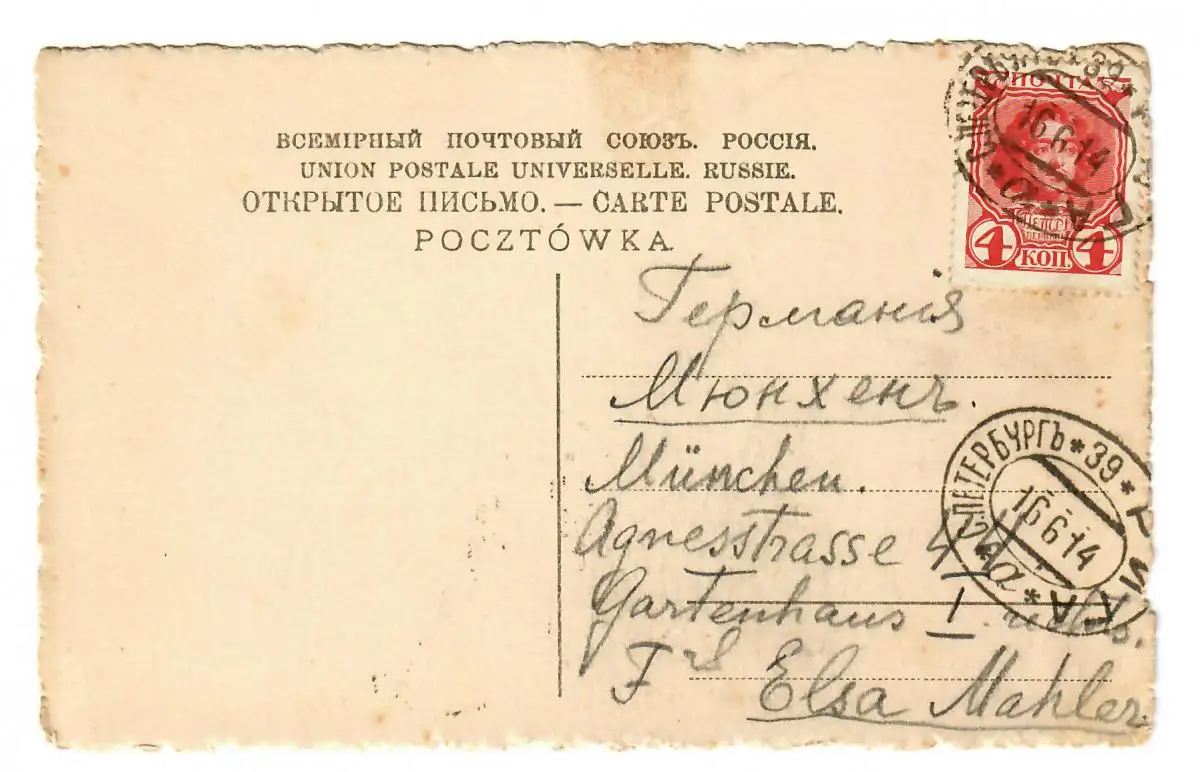 ВСЕМІРНЫЙ ПОЧТОВЫЙ СОЮЗЪ. РОССІЯ.
UNION POSTALE UNIVERSELLE. RUSSIE.
ОТКРЫТОЕ ПИСЬМО. — CARTE POSTALE.
POCZTÓWKA
ПОЧТА
16 6 14
4 КОП. 4
Германія
Мюнхенъ.
München.
Agnesstrasse 44
Gartenhaus I rechts.
Frl Elsa Mahler
С.ПЕТЕРБУРГЪ * 39 *
16 6 14